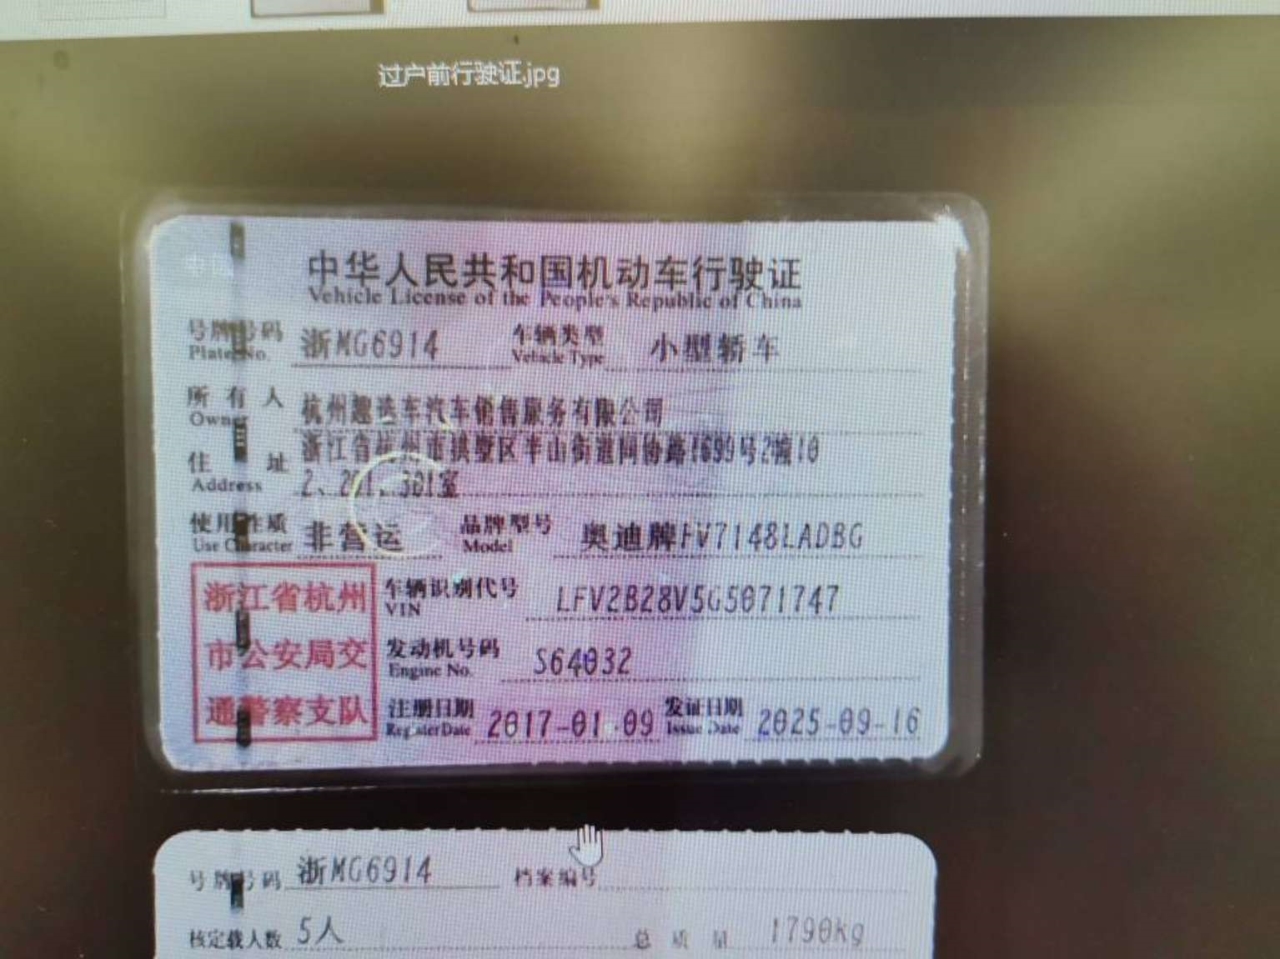 过户前行驶证.jpg
中华人民共和国机动车行驶证
Vehicle License of the People's Republic of China
号牌号码 浙MG6914 车辆类型 小型轿车
Plate No. Vehicle Type
所有人 杭州趣选车汽车销售服务有限公司
Owner
浙江省杭州市拱墅区半山街道同协路1699号2幢10
住址 2、201、301室
Address
使用性质 非营运 品牌型号 奥迪牌FV7148LADBG
Use Character Model
浙江省杭州 车辆识别代号 LFV2B28V5G5071747
VIN
市公安局交 发动机号码 S64032
Engine No.
通警察支队 注册日期 2017-01-09 发证日期 2025-09-16
Register Date Issue Date
号牌号码 浙MG6914 档案编号
核定载人数 5人 总质量 1790kg